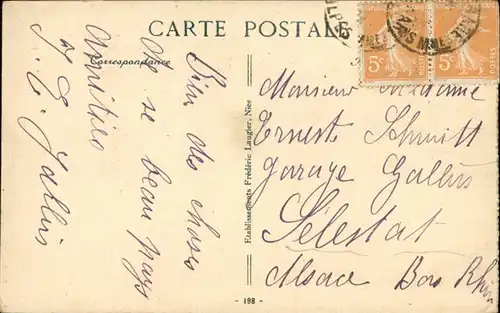 CARTE POSTALE
Correspondance
Bien des choses
de ce beau pays
Amitiés
Monsieur Madame
Ernest Schmitt
Garage Gallus
Sélestat
Alsace Bas Rhin
Etablissements Frédéric Laugier, Nice
- 198 -
5c
5c
POSTES